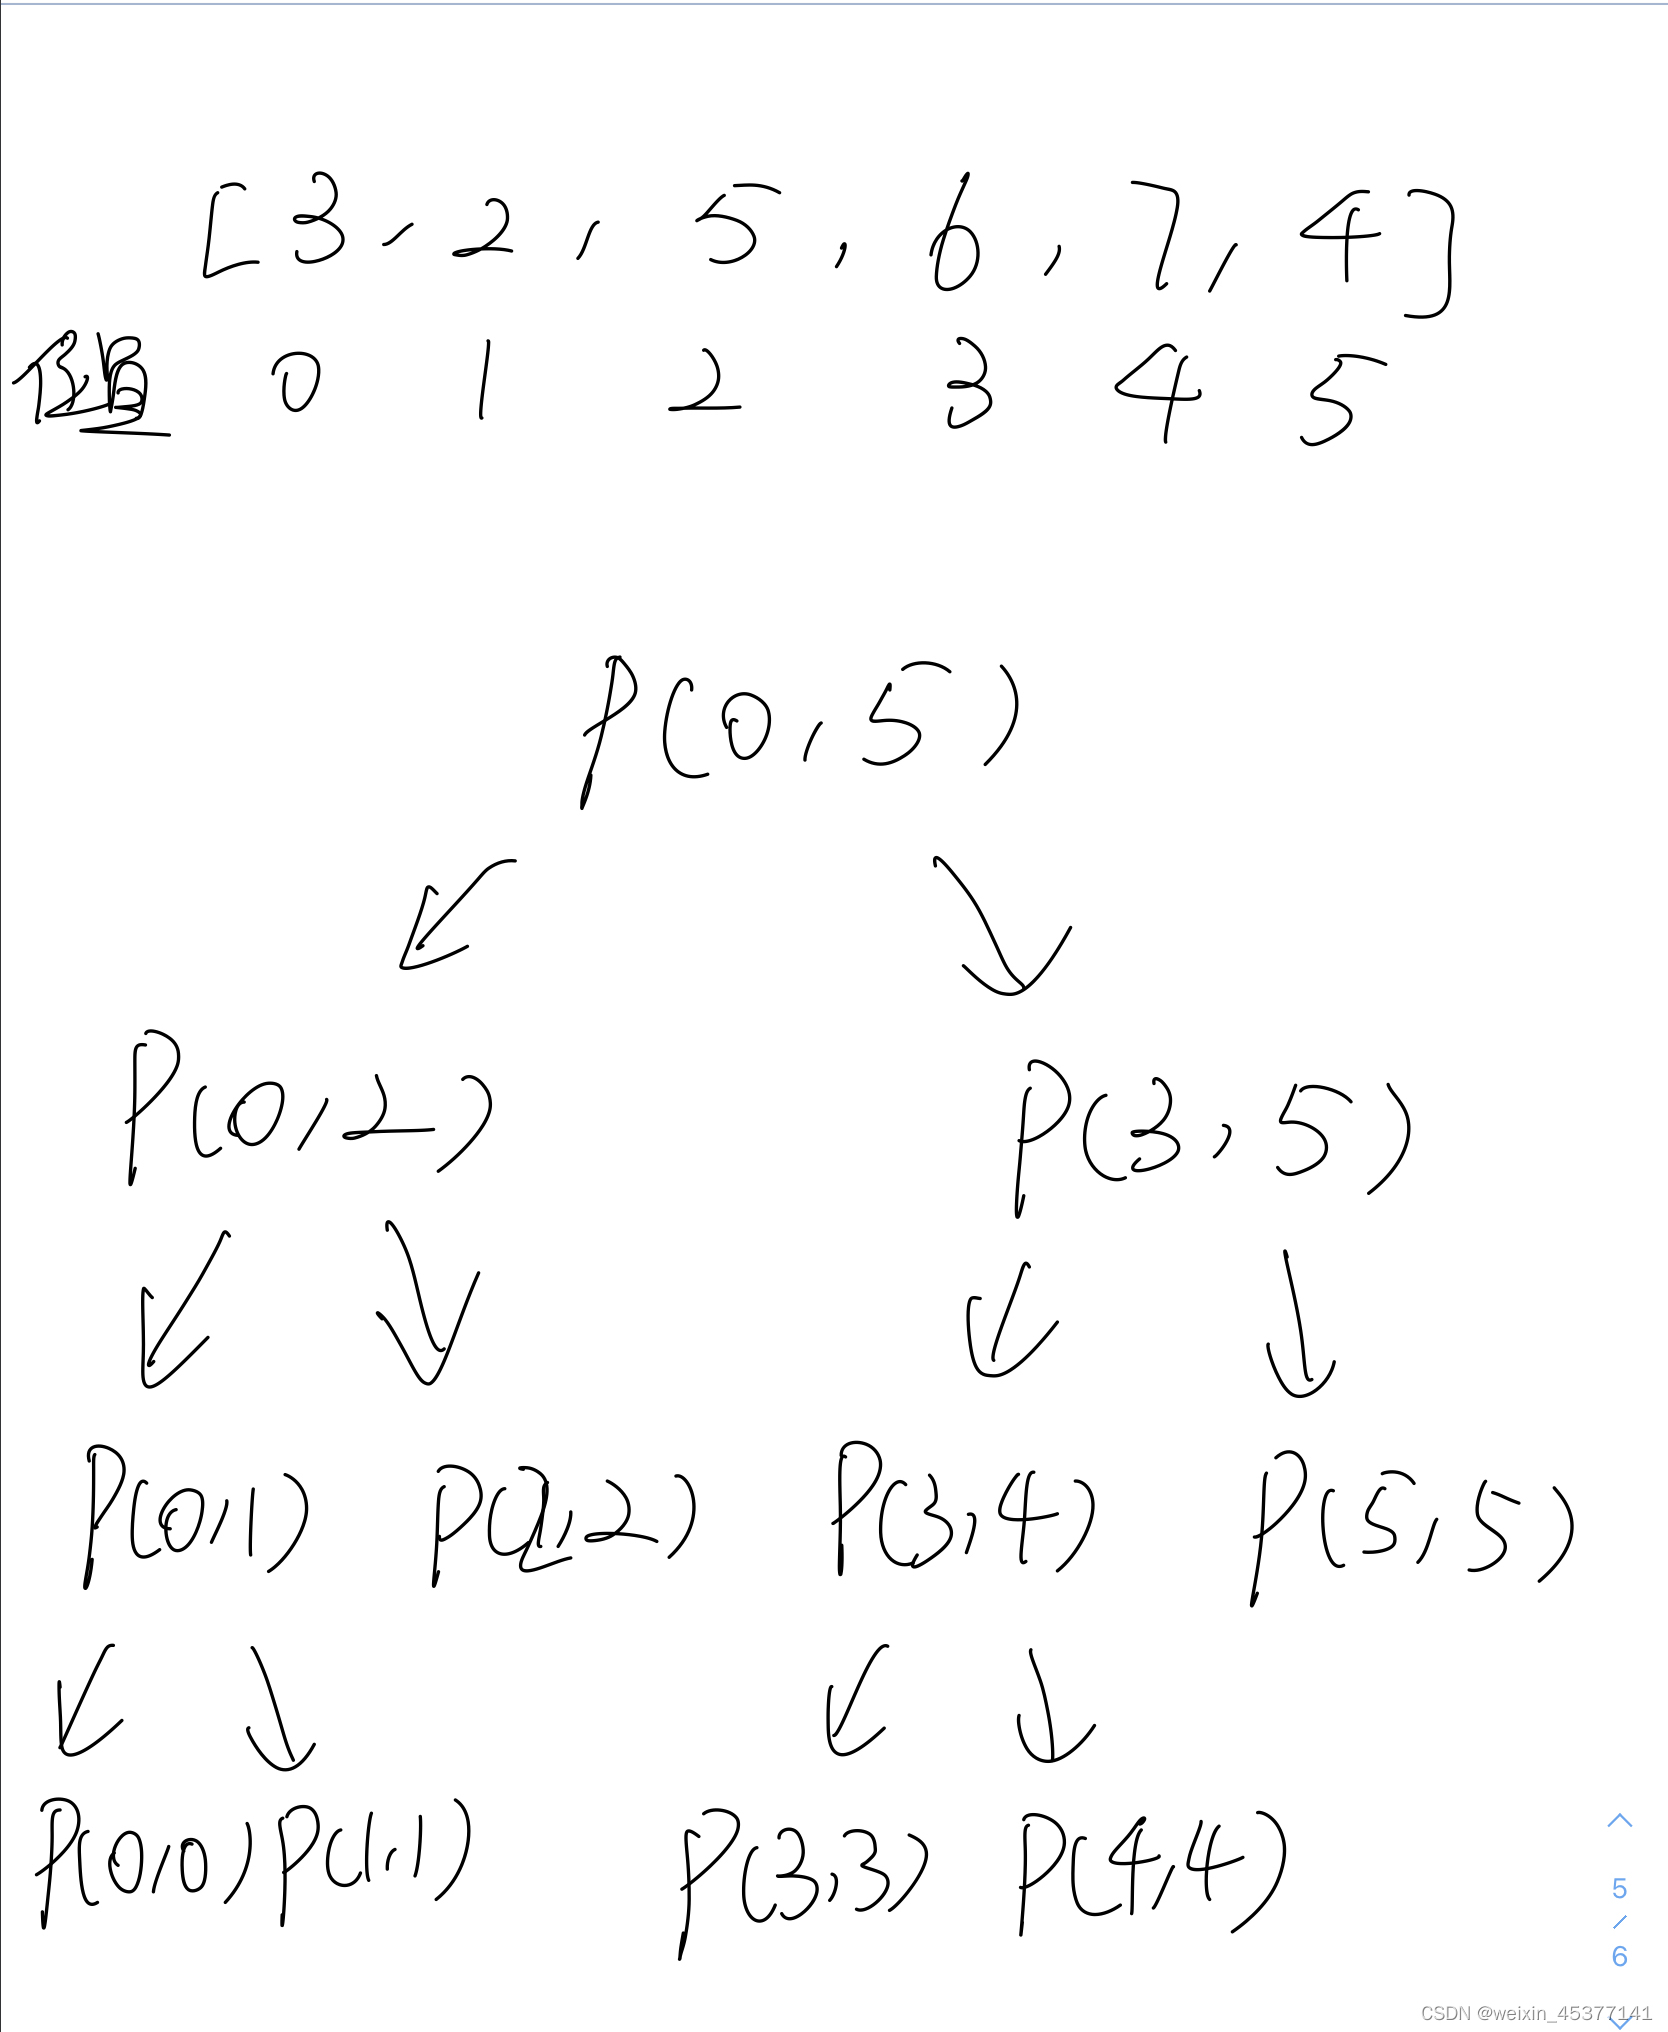 [3,2,5,6,7,4]
位置 0 1 2 3 4 5
P(0,5)
P(0,2) P(3,5)
P(0,1) P(2,2) P(3,4) P(5,5)
P(0,0) P(1,1) P(3,3) P(4,4)
5
/
6
CSDN @weixin_45377141